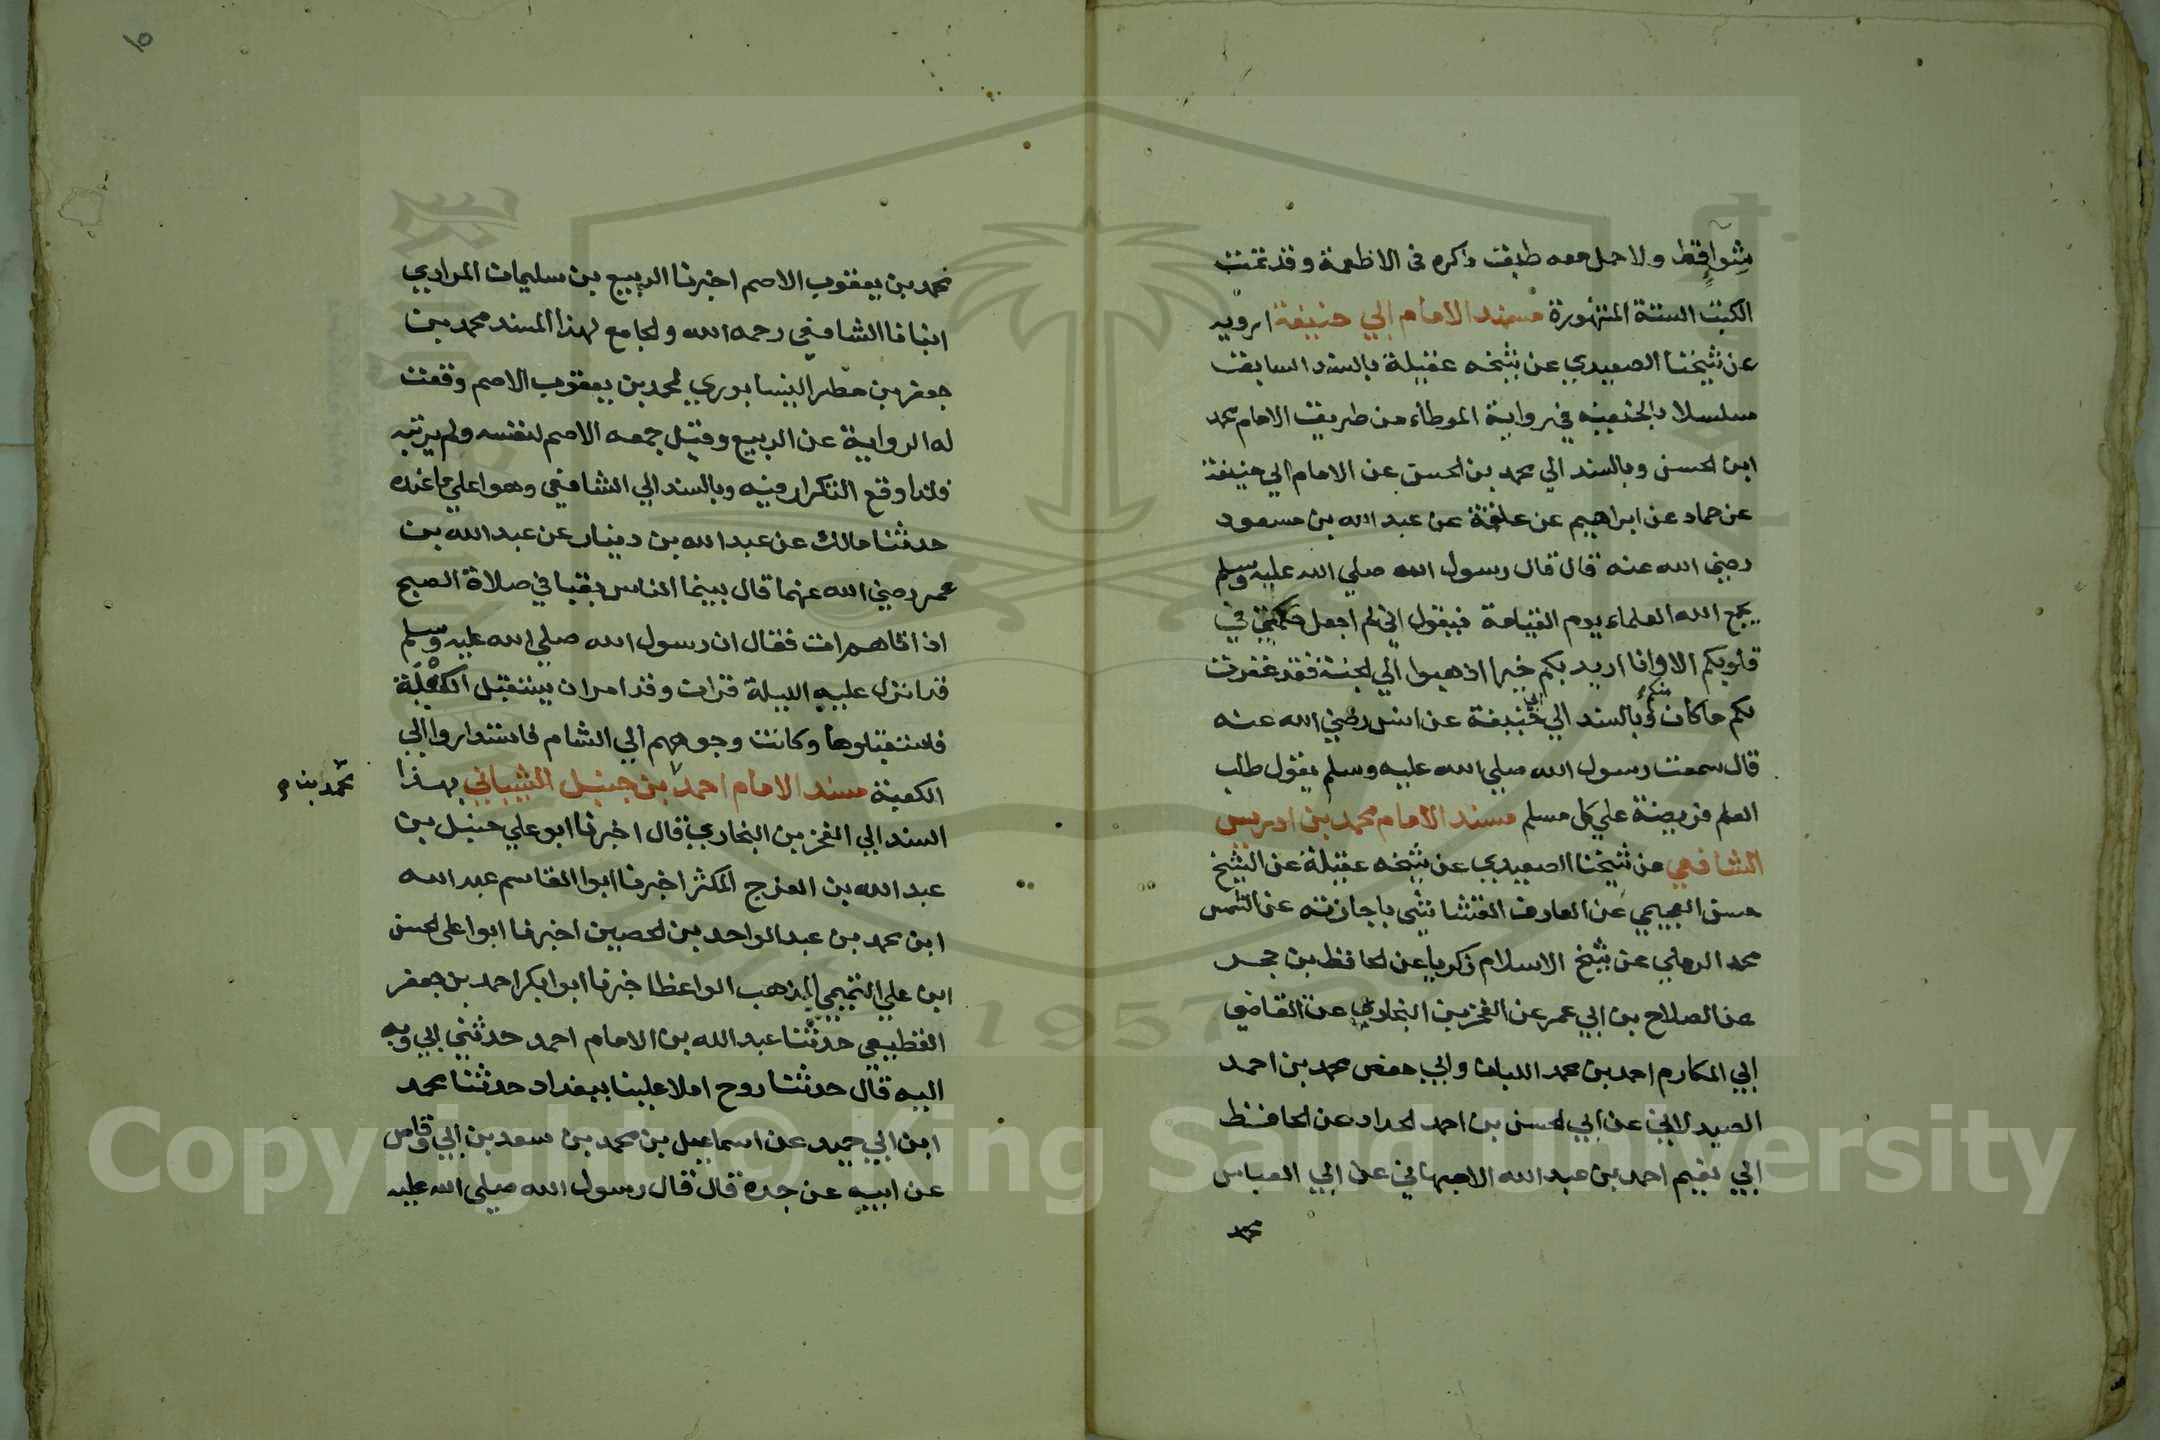 شوا فقط ولاجل معه طبقت ذكره في الاطعمة وقد تمت
الكتب الستة المشهورة مسند الامام ابي حنيفة ارويه
عن شيخنا الصعيدي عن شيخه عقيلة بالسند السابق
مسلسلا بالحنفية في رواية الموطاء من طريق الامام محمد
ابن الحسن وبالسند الي محمد بن الحسن عن الامام ابي حنيفة
عن حماد عن ابراهيم عن علقمة عن عبد الله بن مسعود
رضي الله عنه قال قال رسول الله صلي الله عليه وسلم
يجمع الله العلماء يوم القيامة فيقول اني لم اجعل حكمتي في
قلوبكم الا وانا اريد بكم خيرا اذهبوا الي الجنة فقد غفرت
لكم ما كان منكم وبالسند الي ابي حنيفة عن انس رضي الله عنه
قال سمعت رسول الله صلي الله عليه وسلم يقول طلب
العلم فريضة علي كل مسلم مسند الامام محمد بن ادريس
الشافعي عن شيخنا الصعيدي عن شيخه عقيلة عن الشيخ
حسن العجيمي عن العارف القشاشي باجازته عن الشمس
محمد الرملي عن شيخ الاسلام زكريا عن الحافظ بن حجر
عن الصلاح بن ابي عمر عن الفخر بن البخاري عن القاضي
ابي المكارم احمد بن محمد اللبان وابي جعفر محمد بن احمد
الصيدلاني عن ابي الحسن بن احمد الحداد عن الحافظ
ابي نعيم احمد بن عبد الله الاصبهاني عن ابي العباس
محمد
١٥
محمد بن يعقوب الاصم اخبرنا الربيع بن سليمان المرادي
انبانا الشافعي رحمه الله والجامع لهذا المسند محمد بن
جعفر بن مطر النيسابوري لمحمد بن يعقوب الاصم وقعت
له الرواية عن الربيع وقيل جمعه الاصم لنفسه ولم يرتبه
فلذا وقع التكرار فيه وبالسند الي الشافعي وهو اعلي ما عنده
حدثنا مالك عن عبد الله بن دينار عن عبد الله بن
عمر رضي الله عنهما قال بينما الناس بقبا في صلاة الصبح
اذ اتاهم ات فقال ان رسول الله صلي الله عليه وسلم
قد انزل عليه الليلة قران وقد امر ان يستقبل القبلة
فاستقبلوها وكانت وجوههم الي الشام فاستداروا الي
الكعبة مسند الامام احمد بن حنبل الشيباني بهذا
محمد بن
السند الي الفخر بن البخاري قال اخبرنا ابو علي حنبل بن
عبد الله بن الفرج المكثر اخبرنا ابوا القاسم عبد الله
ابن محمد بن عبد الواحد بن الحصين اخبرنا ابوا علي الحسن
ابن علي التميمي المذهب الواعظ اخبرنا ابوا بكر احمد بن جعفر
القطيعي حدثنا عبد الله بن الامام احمد حدثني ابي وبه
اليه قال حدثنا روح املا علينا ببغداد حدثنا محمد
ابن ابي حميد عن اسماعيل بن محمد بن سعد بن ابي وقاص
عن ابيه عن جده قال قال رسول الله صلي الله عليه
1957
Copyright © King Saud University